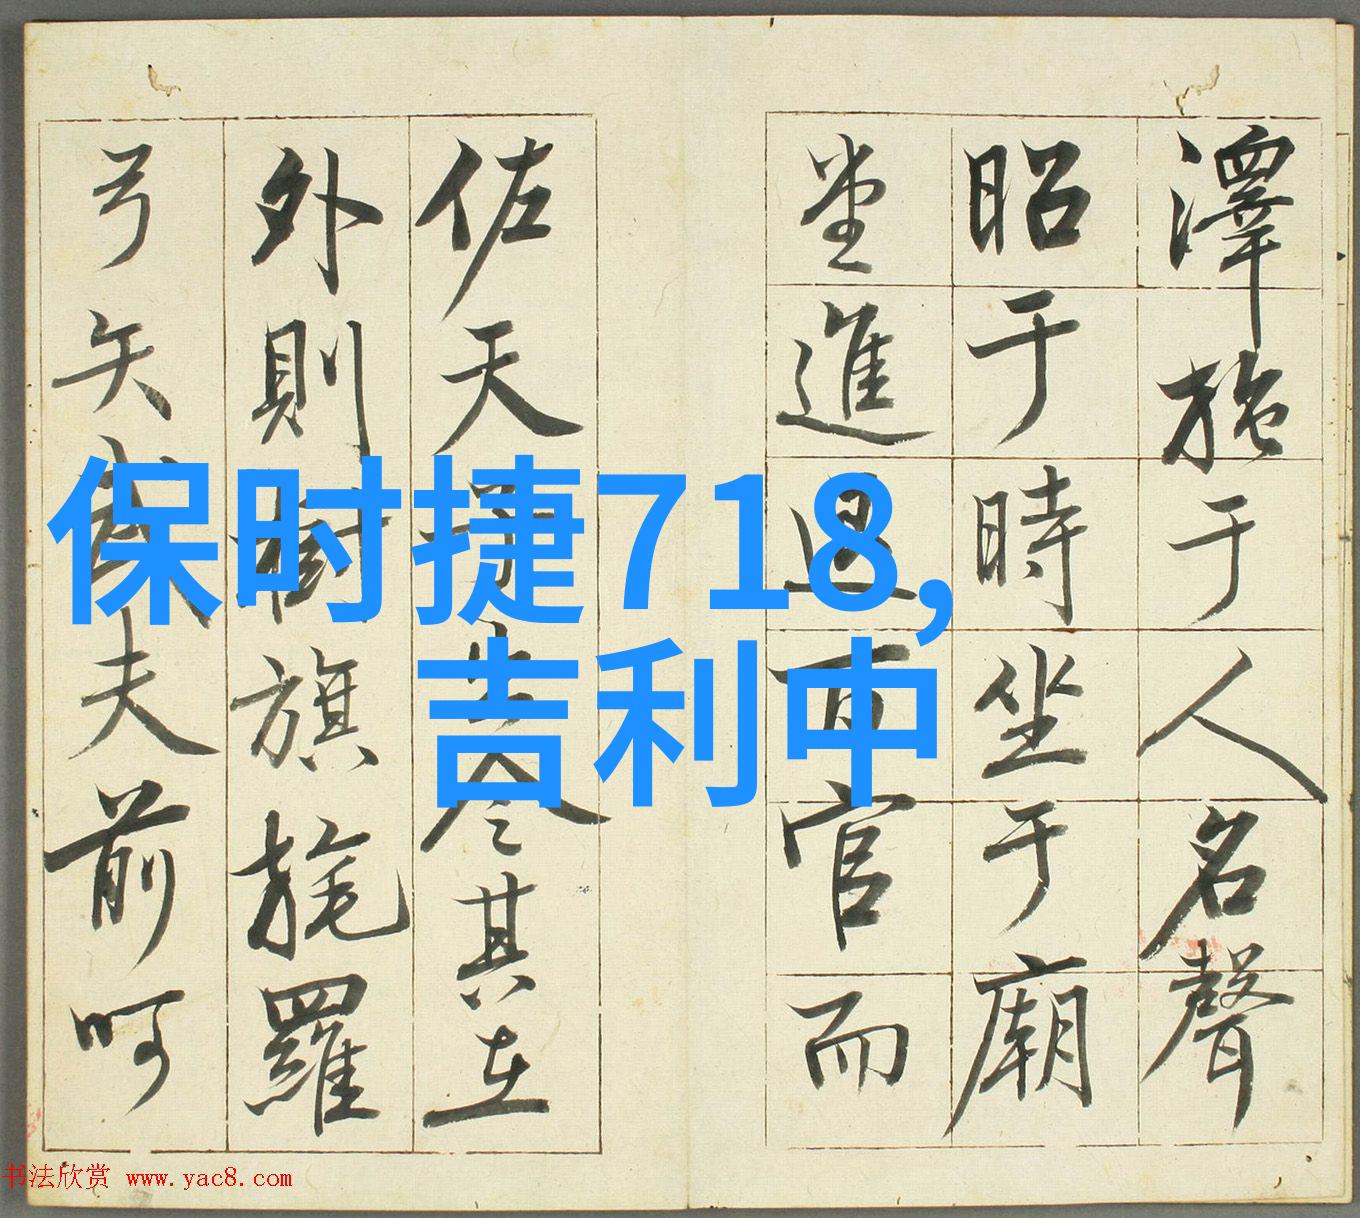 澤施于人名聲
昭于時坐于廟
堂進退百官而
佐天子出令其在
外則樹旗旄羅
弓矢武夫前呵
保时捷718,
吉利中
书法欣赏 www.yac8.com